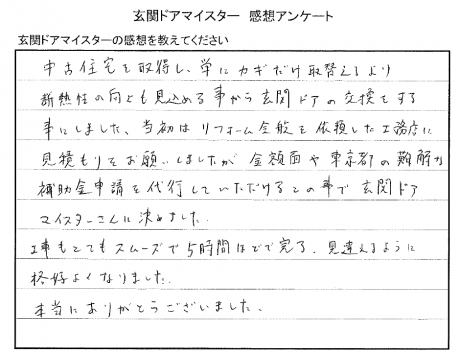 玄関ドアマイスター 感想アンケート
玄関ドアマイスターの感想を教えてください
中古住宅を取得し、単にカギだけ取替えるより
断熱性の向上も見込める事から玄関ドアの交換をする
事にしました、当初はリフォーム全般を依頼した工務店に
見積もりをお願いしましたが 金額面や東京都の難解な
補助金申請を代行していただけるとの事で 玄関ドア
マイスターさんに決めました。
工事もとてもスムーズで5時間ほどで完了、見違えるように
格好よくなりました。
本当にありがとうございました。